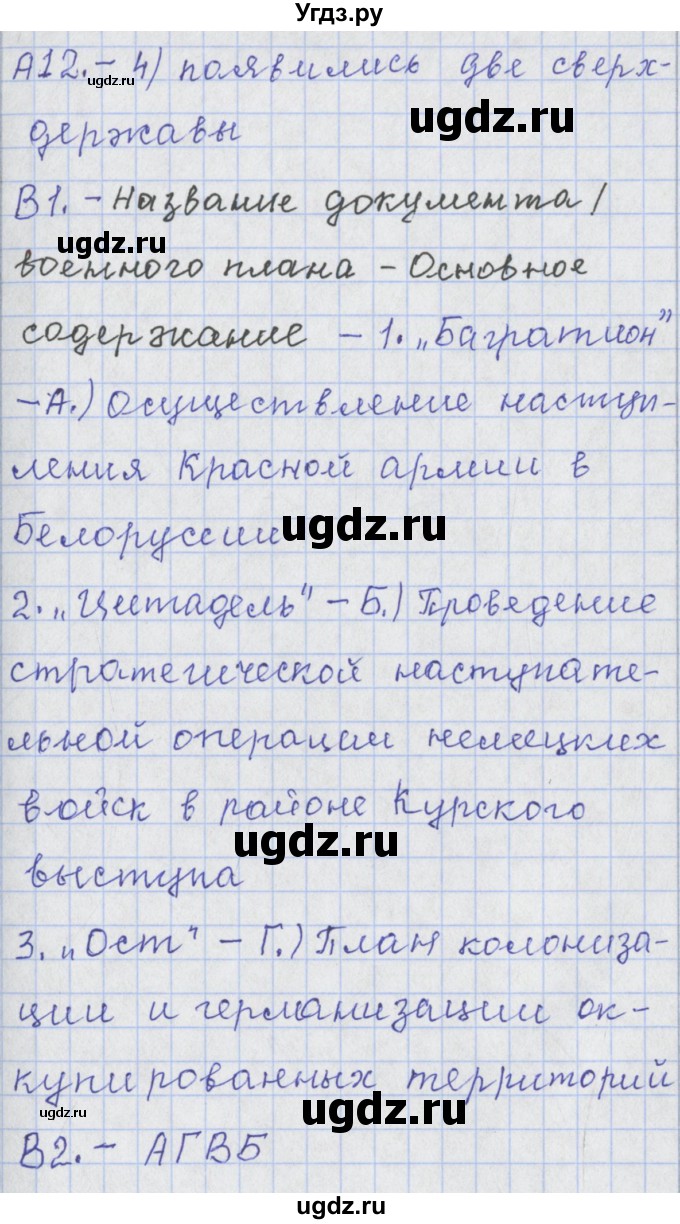 Угдз.ру
А12. – 4) появились две сверх-
ugdz.ru
ugdz.ru
державы
В1. – Название документа /
ugdz.ru
военного плана – Основное
содержание – 1. „Багратион”
– А.) Осуществление наступ-
ления Красной армии в
Белоруссии
ugdz.ru
2. „Цитадель" – Б.) Проведение
стратегической наступате-
льной операции немецких
войск в районе Курского
ugdz.ru
выступа
3. „Ост" – Г.) План колониза-
ции и германизации ок-
купированных территорий
ugdz.ru
ugdz.ru
В2. – АГВБ
ugdz.ru